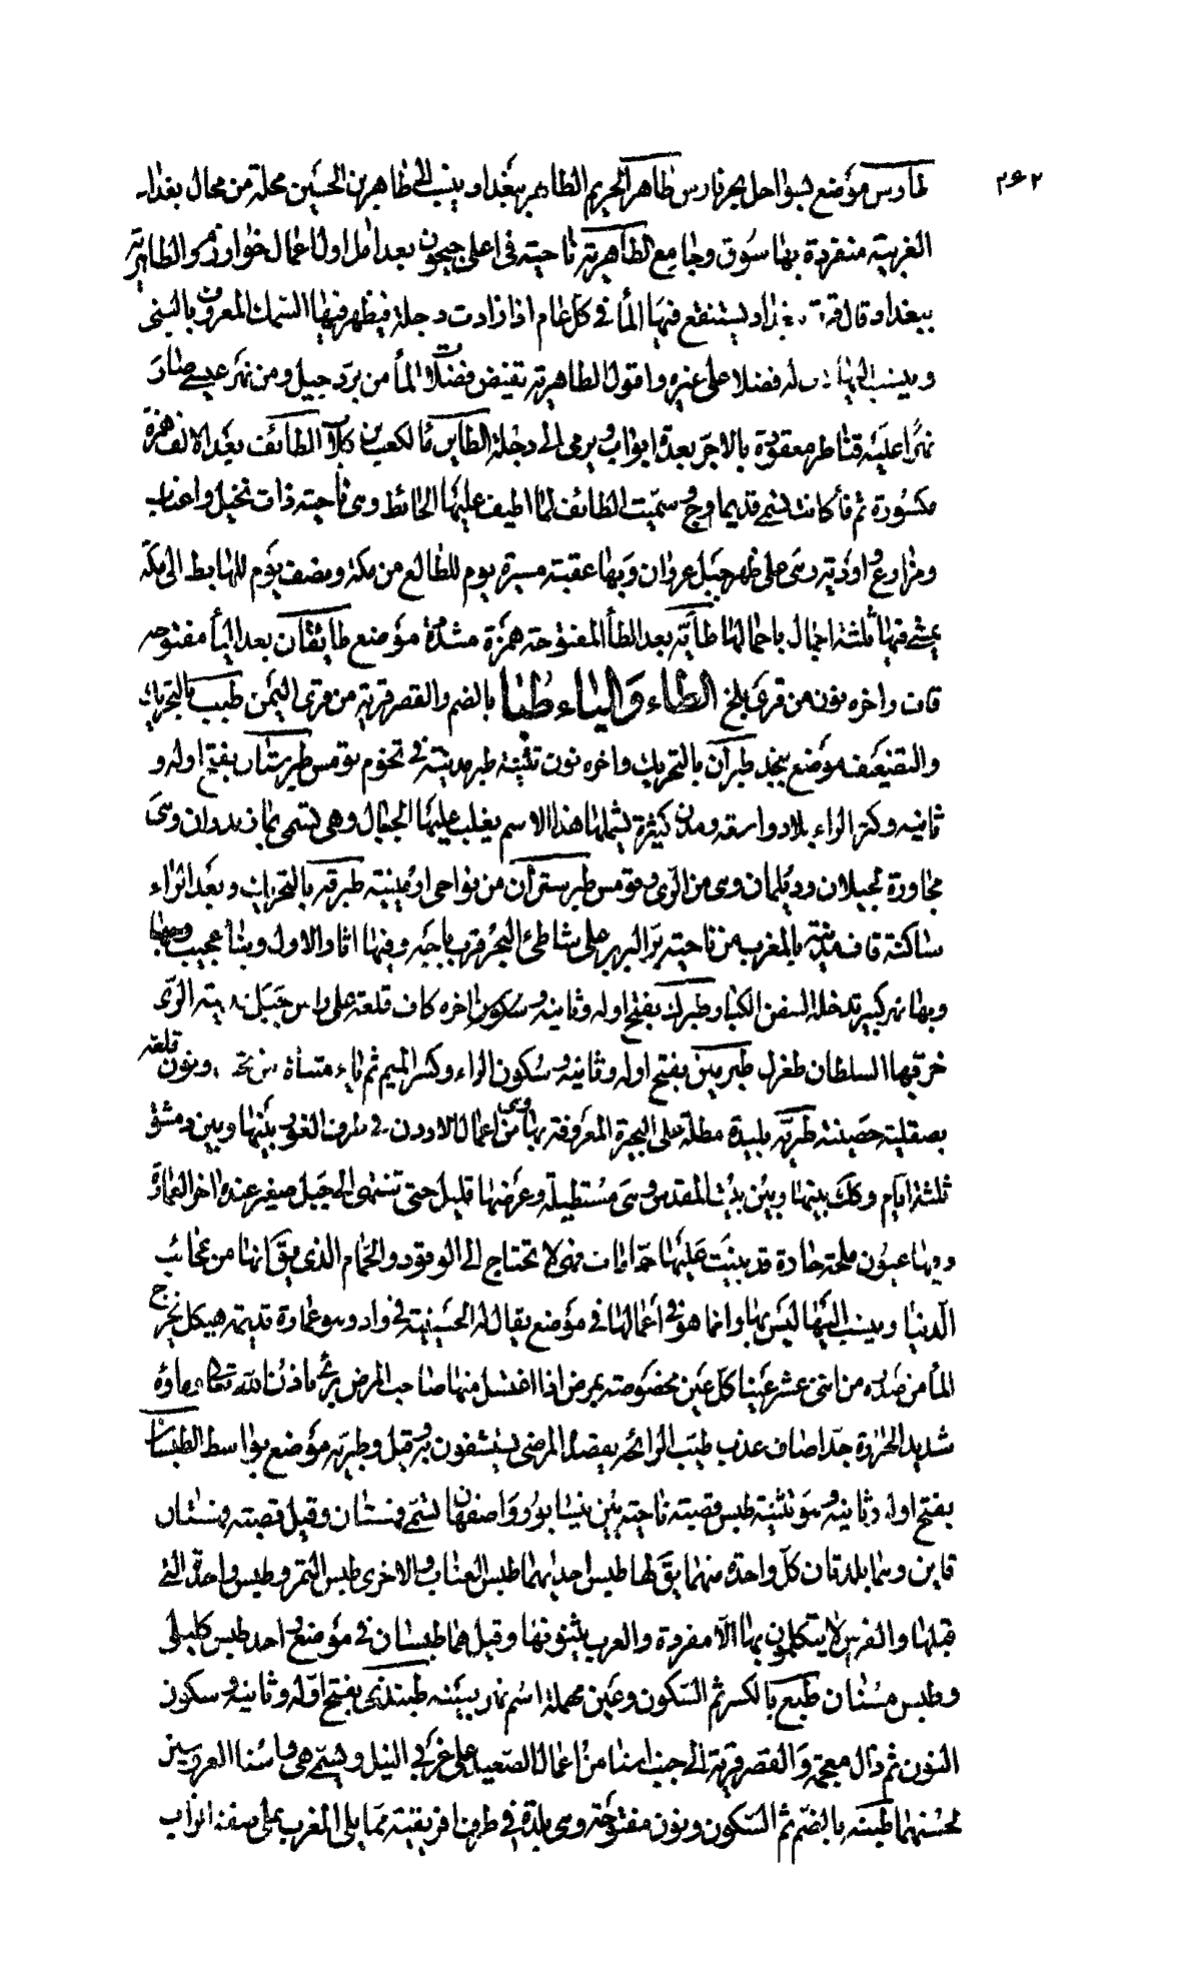 ٢٤٢
لمارس موضع بسواحل بحر فارس طاهر الحريم الطاهر ببغداد وينسب الى طاهر بن الحسين محلة من محال بغداد
الغربية منفردة بها سوق وجامع الطاهرية ناحية فى اعلى جيحون بعد امل اول اعمال خوارزم والطاهرية
ببغداد قال قرية ببغداد يستنقع فيها المأ فى كل عام اذا زادت دجلة فيظهر فيها السمك المعروف بالبنى
وينسب اليها فضلا على غيره واقول الطاهرية تفيض فضلات المأ من برد جيل ومن نهر عيسى صار
نهرا عليه قناطر معقودة بالاجر بعدة ابواب يرمى الى دجلة الطاير ما لكعب بن كلاب الطائف بعد الالف همزة
مكسورة ثم فأ كانت تسمى قديما وج وسميت الطائف لما اطيف عليها الحائط وهى ناحية ذات نخيل واعناب
ومزارع واودية وهى على ظهر جبل غزوان وبها عقبة مسيرة يوم للطالع من مكة ونصف يوم للهابط الى مكة
يمشى فيها ثلثة اجمال باحمالها طأية بعد الطأ المفتوحة همزة مشددة موضع طايقان بعد اليأ مفتوحه
قاف واخره نون من قرى بلخ الطاء والباء طُبا بالضم والقصر قرية من قرى اليمن طبب بالتحريك
والتضعيف موضع بنجد طبران بالتحريك واخره نون تثنية طبر مدينة فى تخوم قومس طبرستان بفتح اوله و
ثانيه وكسر الراء بلاد واسعة ومدن كثيرة يشملها هذا الاسم يغلب عليها الجبال وهى تسمى بمازندران وهى
مجاورة لجيلان وديلمان وهى من الرى وقومس طبرستران من نواحى ارمينية طبرقة بالتحريك وبعد الراء
ساكنة قاف مدينة بالمغرب من ناحية بر البربر على شاطئ البحر قرب باجه وفيها اثار الاول وبنأ عجيب
وبها نهر كبير تدخله السفن الكبار طبرك بفتح اوله وثانيه وسكون اخره كاف قلعة على راس جبيل الرى
خرقها السلطان طغرل طبرمين بفتح اوله وثانيه وسكون الراء وكسر الميم ثم ياء مثناة من تحت ونون قلعة
بصقلية حصينة طبرية بليدة مطلة على البحرة المعروفة بها وهى من اعمال الاردن فى طرف الغور بينها وبين دمشق
ثلثة ايام وكك بينها وبين بيت المقدس وهى مستطيلة وعرضها قليل حتى تنتهى الى جبل صغير عنده اخر العمارة
وبها عيون ملحة حارة قد بنيت عليها حمامات فهى لا تحتاج الى الوقود والحمام الذى يق انها من عجائب
الدنيا وينسب اليها ليس بها وانما هو فى اعمالها فى موضع يقال له الحسينية فى واد وهو عمارة قديمة هيكل يخرج
المأ من صدره من اثنى عشر عينا كل عين مخصوصة بمرض اذا اغتسل منها صاحب المرض برئ باذن الله تعالى وماؤه
شديد الحرارة جدا صاف عذب طيب الرائحه يقصده المرضى يستشفون به قيل وطبرية موضع بواسط الطبسان
بفتح اوله وثانيه وهو تثنية طبس قصبة ناحية بين نيسابور واصفهان تسمى قهستان وقيل قصبة قهستان
قاين وهما بلدتان كل واحدة منهما يق لها طبس احديهما طبس العناب والاخرى طبس التمر وطبس واحدة التى
قبلها والفرس لا يتكلمون بها الا مفردة والعرب يثنونها وقيل هما طبسان فى موضع واحد طبس كليلى
وطبس مسنان طبع بالكسر ثم السكون وعين مهملة اسم نهر بعينه طبندى بفتح اوله وثانيه وسكون
النون ثم ذال معجمة والقصر قرية الى جنب اسنا من اعمال الصعيد على غربى النيل وتسمى هى واسنا العروسين
لحسنهما طبنة بالضم ثم السكون ونون مفتوحة وهى بلدة فى طرف افريقية مما يلى المغرب على ضفة الزاب